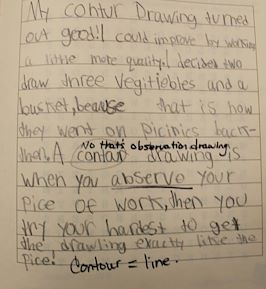 My contur Drawing turned
out good! I could improve by working
a little more quality. I decided two
draw three Vegitiebles and a
busket, beause that is how
they went on Picinics back-
then. A contour drawing is
No thats observation drawing
When you observe your
Pice of work, then you
try your hardest to get
the drawling exactly like the
pice!
Contour = line.